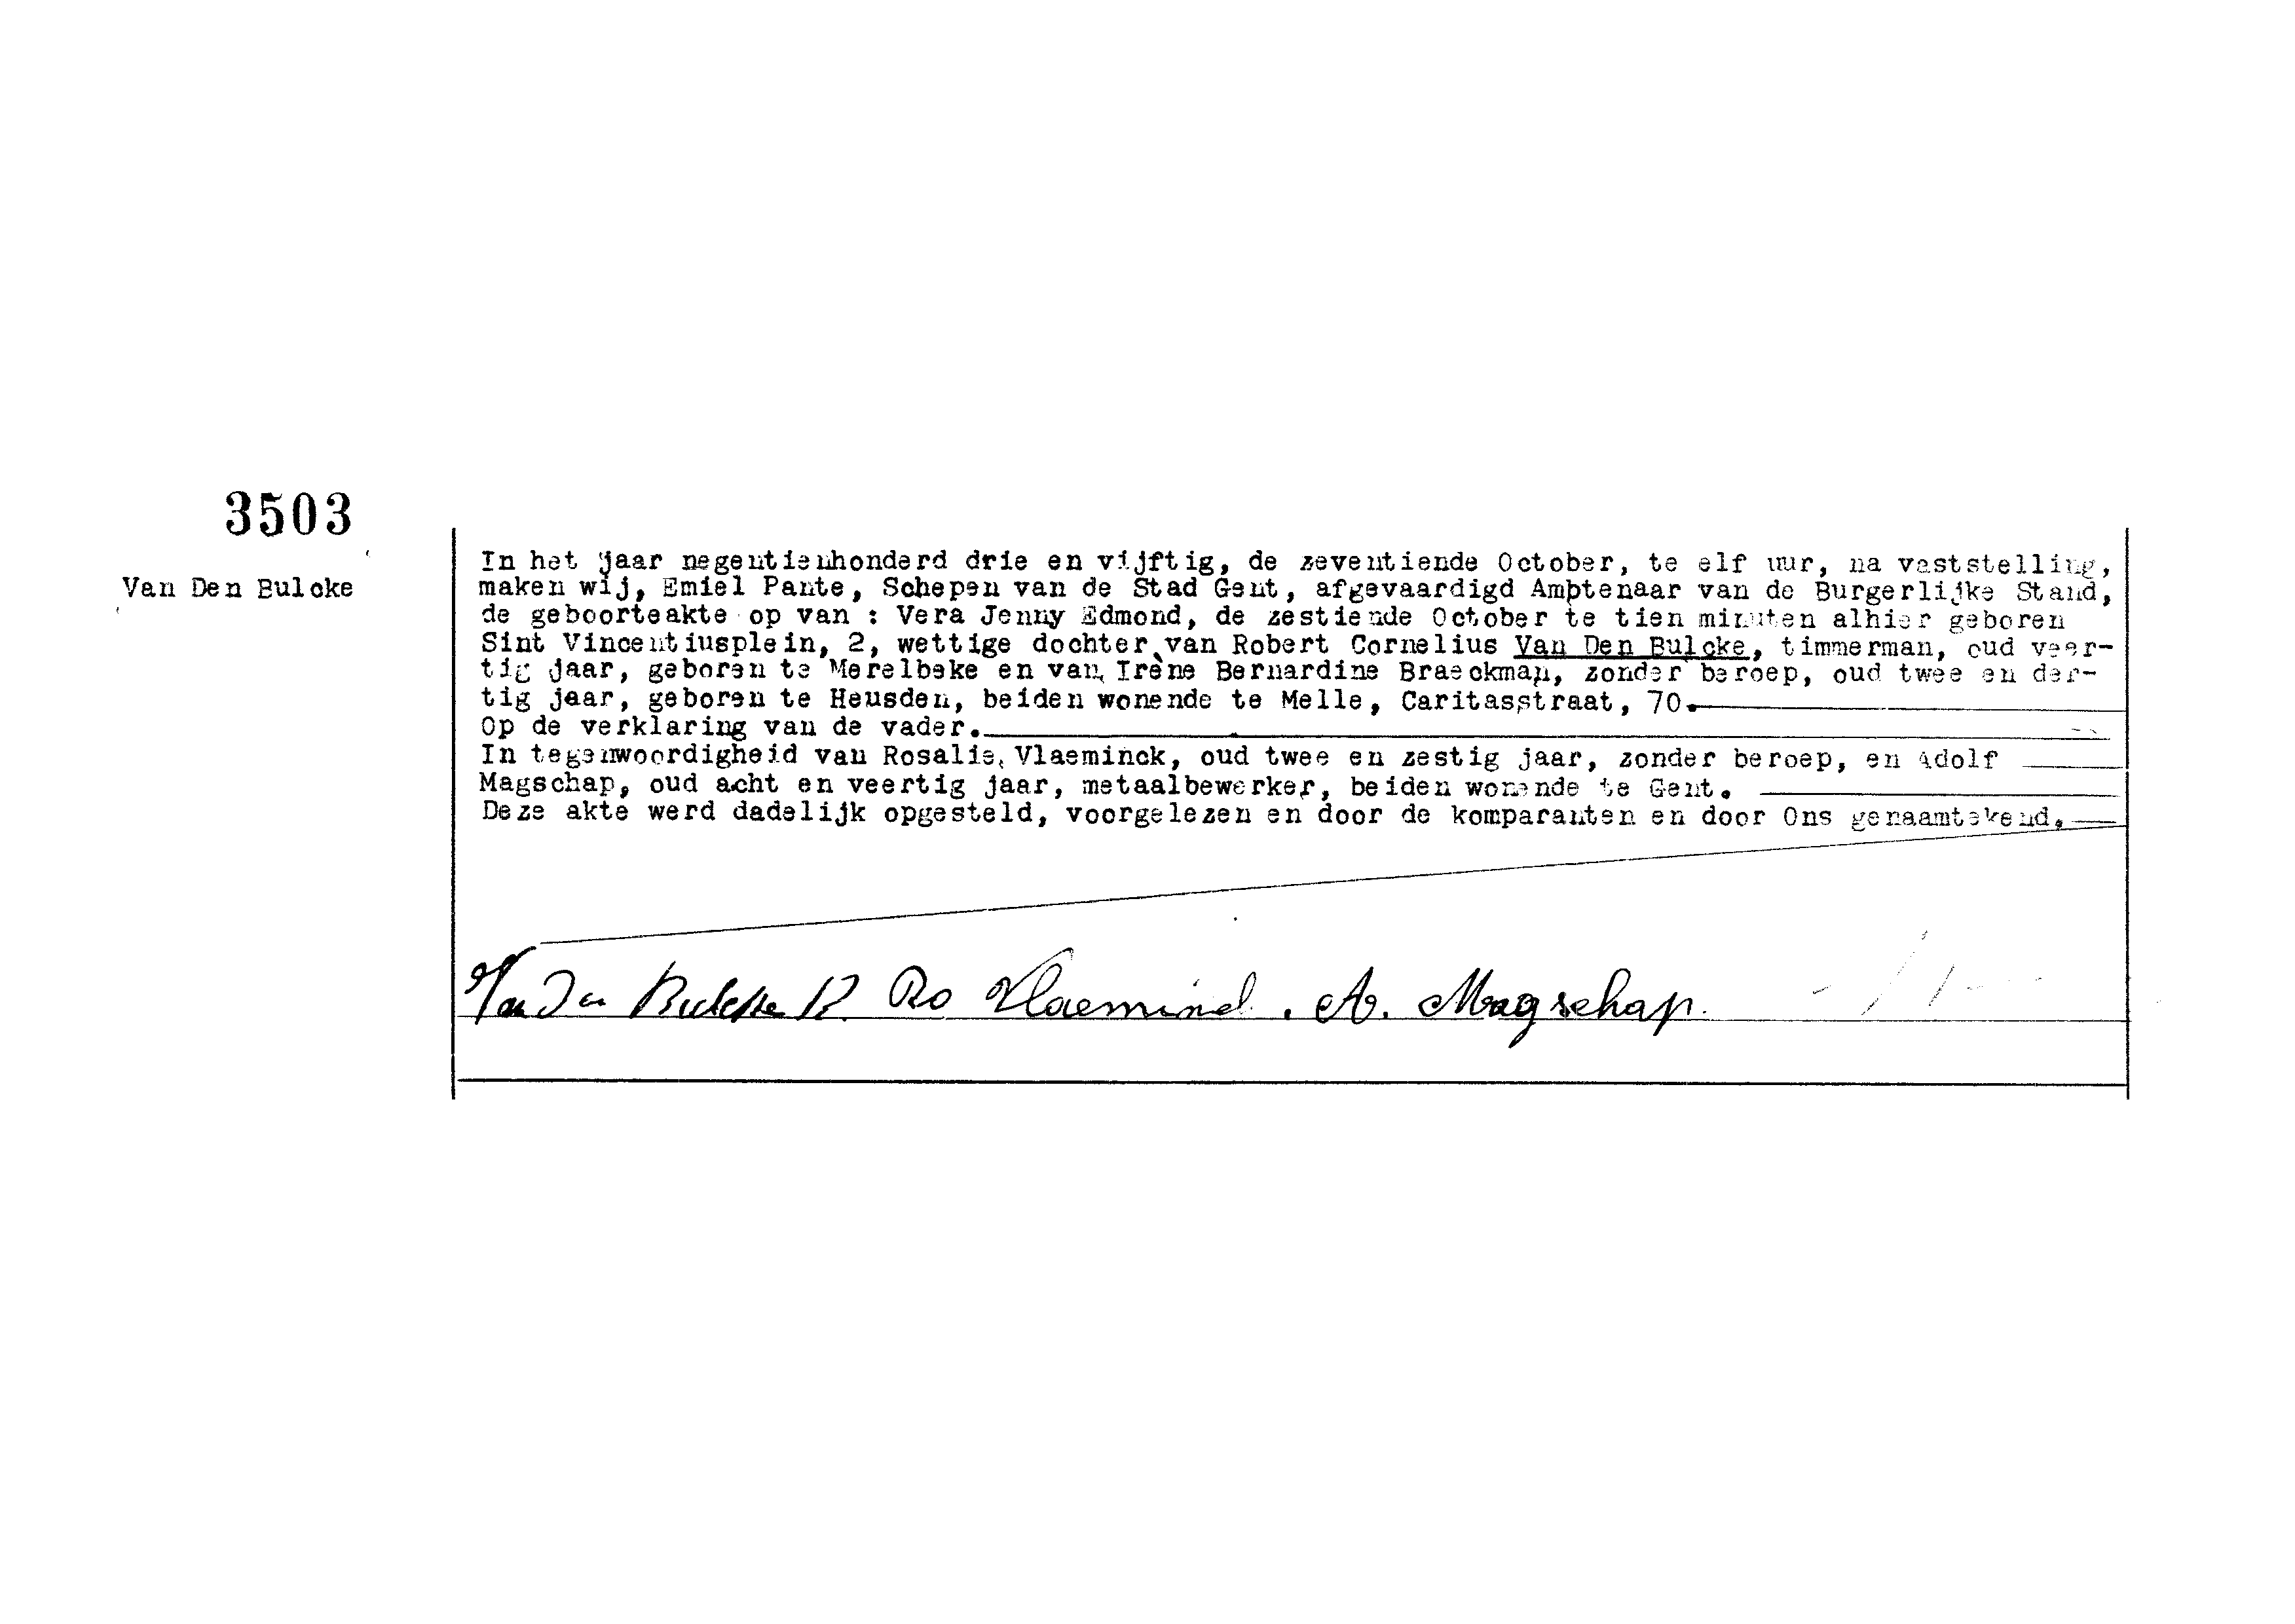 3503
Van Den Bulcke
In het jaar negentienhonderd drie en vijftig, de zeventiende October, te elf uur, na vaststelling,
maken wij, Emiel Pante, Schepen van de Stad Gent, afgevaardigd Ambtenaar van de Burgerlijke Stand,
de geboorteakte op van : Vera Jenny Edmond, de zestiende October te tien minuten alhier geboren
Sint Vincentiusplein, 2, wettige dochter van Robert Cornelius Van Den Bulcke, timmerman, oud veer-
tig jaar, geboren te Merelbeke en van Irène Bernardine Braeckman, zonder beroep, oud twee en der-
tig jaar, geboren te Heusden, beiden wonende te Melle, Caritasstraat, 70.
Op de verklaring van de vader.
In tegenwoordigheid van Rosalie Vlaeminck, oud twee en zestig jaar, zonder beroep, en Adolf
Magschap, oud acht en veertig jaar, metaalbewerker, beiden wonende te Gent.
Deze akte werd dadelijk opgesteld, voorgelezen en door de komparanten en door Ons genaamtekend.
Van Den Bulcke R. Ro Vlaeminck. A. Magschap.